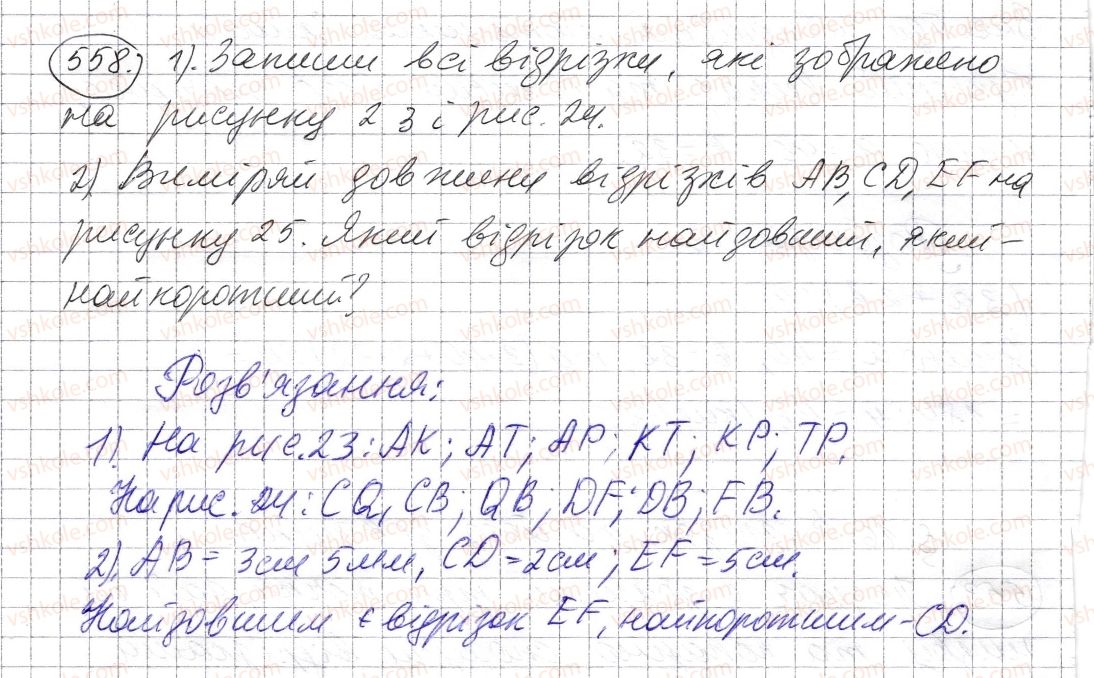 558. 1). Запиши всі відрізки, які зображено
на рисунку 23 і рис. 24.
2) Виміряй довжини відрізків AB, CD, EF на
рисунку 25. Який відрізок найдовший, який –
найкоротший?
Розв'язання:
1). На рис. 23: AK; AT; AP; KT; KP; TP.
На рис. 24: CQ, CB; QB, DF; DB; FB.
2). AB = 3см 5мм, CD = 2см; EF = 5см.
Найдовшим є відрізок EF, найкоротшим – CD.